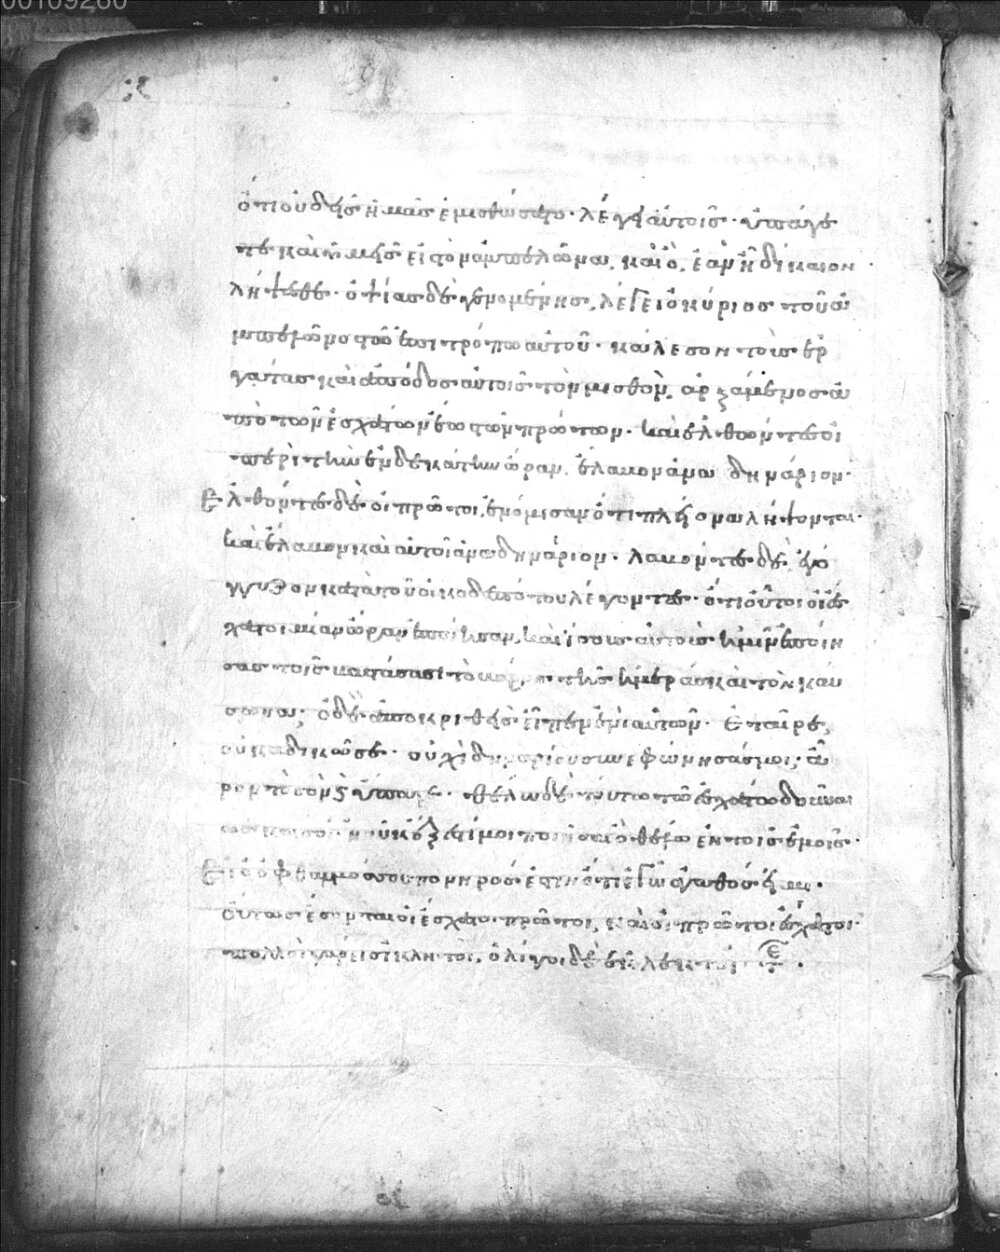 00109260
ὅτι οὐδεὶς ἡμᾶς ἐμισθώσατο· λέγει αὐτοῖς· ὑπάγε
τε καὶ ὑμεῖς εἰς τὸν ἀμπελῶνα, καὶ ὃ ἐὰν ἦ δίκαιον
λήψεσθε· ὀψίας δὲ γενομένης, λέγει ὁ κύριος τοῦ ἀμ
πελῶνος τῶ ἐπιτρόπω αὐτοῦ· κάλεσον τοὺς ἐρ
γάτας καὶ ἀπόδος αὐτοῖς τὸν μισθὸν, ἀρξάμενος ἀ
πὸ τῶν ἐσχάτων ἕως τῶν πρώτων· καὶ ἐλθόντες οἱ
περὶ τὴν ἑνδεκάτην ὥραν, ἔλαβον ἀνὰ δηνάριον·
Ἐλθόντες δὲ οἱ πρῶτοι, ἐνόμισαν ὅτι πλείονα λήψονται·
καὶ ἔλαβον καὶ αὐτοὶ ἀνὰ δηνάριον· λαβόντες δὲ ἐγό
γγυζον κατὰ τοῦ οἰκοδεσπότου λέγοντες· ὅτι οὗτοι οἱ ἔσ
χατοι μίαν ὥραν ἐποίησαν, καὶ ἴσους αὐτοὺς ἡμῖν ἐποίη
σας τοῖς βαστάσασι τὸ βάρος τῆς ἡμέρας καὶ τὸν καύ
σωνα; ὁ δὲ ἀποκριθεὶς εἶπεν ἑνὶ αὐτῶν· Ἑταῖρε,
οὐκ ἀδικῶ σε· οὐχὶ δηναρίου συνεφώνησάς μοι; ἆ
ρον τὸ σὸν καὶ ὕπαγε· θέλω δὲ τούτω τῶ ἐσχάτω δοῦναι
ὡς καὶ σοί· ἢ οὐκ ἔξεστί μοι ποιῆσαι ὃ θέλω ἐν τοῖς ἐμοῖς·
Εἰ ὁ ὀφθαλμός σου πονηρός ἐστιν ὅτι ἐγὼ ἀγαθός εἰμι·
οὕτως ἔσονται οἱ ἔσχατοι πρῶτοι, καὶ οἱ πρῶτοι ἔσχατοι·
πολλοὶ γάρ εἰσι κλητοὶ, ὀλίγοι δὲ ἐκλεκτοί·